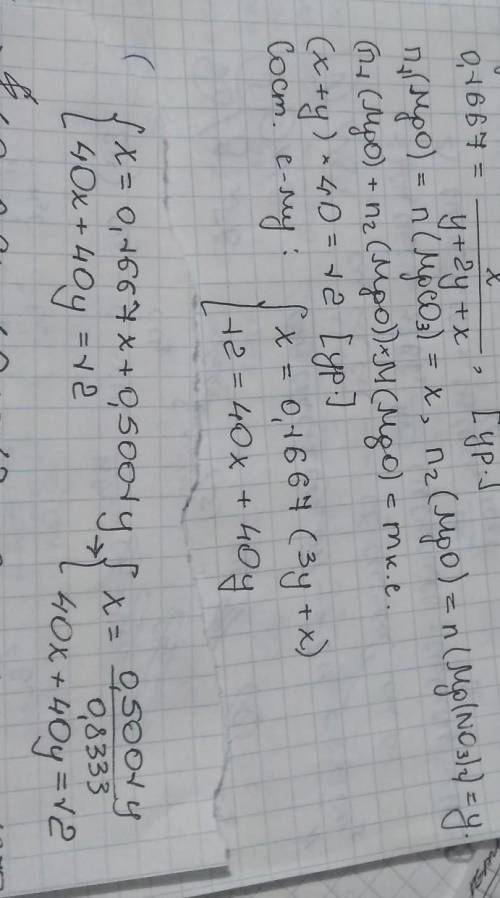 0,1667 = x / (y+2y+x), [ур.]
n₁(MgO) = n(MgCO₃) = x, n₂(MgO) = n(Mg(NO₃)₂) = y.
(n₁(MgO) + n₂(MgO))×M(MgO) = m к.с.
(x+y)×40 = 12 [ур.]
Сост. с-му: { x = 0,1667(3y+x)
{ 12 = 40x + 40y
{ x = 0,1667x + 0,5001y → { x = 0,5001y / 0,8333
{ 40x + 40y = 12 { 40x + 40y = 12